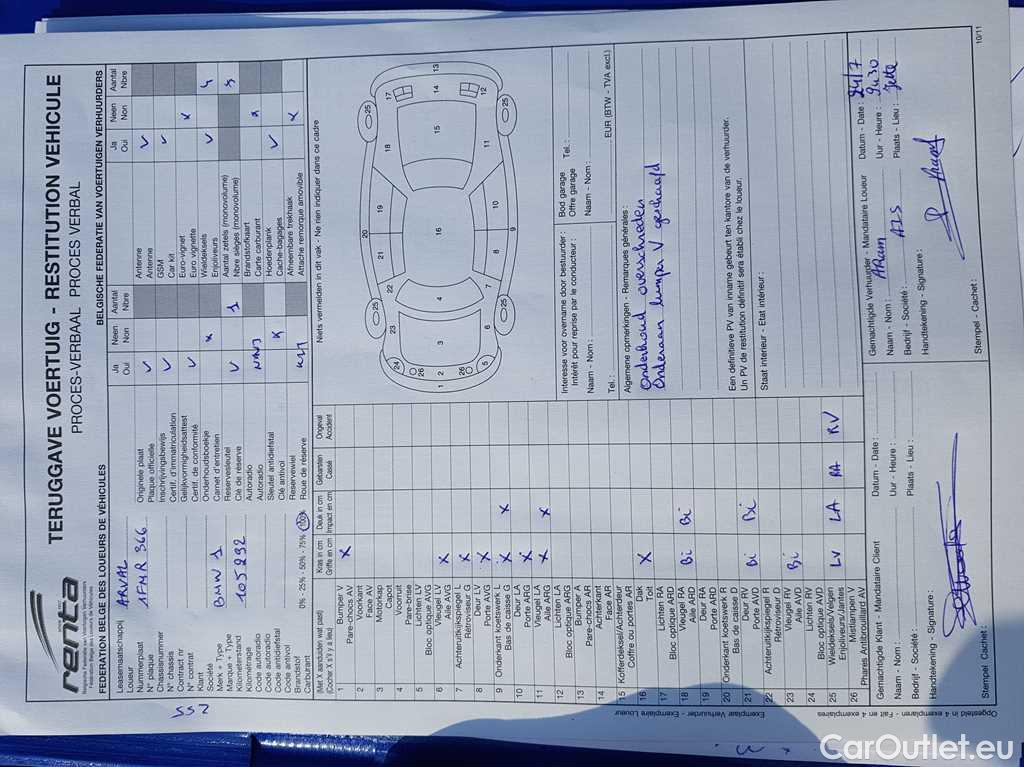 renta
Belgische Federatie van Voertuigenverhuurders
Fédération Belge des Loueurs de Véhicules
TERUGGAVE VOERTUIG - RESTITUTION VEHICULE
PROCES-VERBAAL PROCES VERBAL
FEDERATION BELGE DES LOUEURS DE VÉHICULES
BELGISCHE FEDERATIE VAN VOERTUIGEN VERHUURDERS
SS2
Leasemaatschappij
Loueur
ARVAL
Nummerplaat
N° plaque
1FMR 366
Chassisnummer
N° chassis
Contract nr
N° contrat
Klant
Société
Merk + Type
Marque + Type
BMW 1
Kilometerstand
Kilométrage
105292
Code autoradio
Code autoradio
Code antidiefstal
Code antivol
Brandstof
Carburant
0% - 25% - 50% - 75% - 100%
Ja Neen Aantal
Oui Non Nbre
Originele plaat V
Plaque officielle
Inschrijvingsbewijs V
Certif. d'immatriculation
Gelijkvormigheidsattest V
Certif. de conformité
Onderhoudsboekje x
Carnet d'entretien
Reservesleutel V 1
Clé de réserve
Autoradio
Autoradio
Sleutel antidiefstal x
Clé antivol
Reservewiel
Roue de réserve
Ja Neen Aantal
Oui Non Nbre
Antenne V
Antenne
GSM V
Car kit
Euro-vignet x
Euro vignette
Wieldeksels V 4
Enjoliveurs
Aantal zetels (monovolume) 5
Nbre sièges (monovolume)
Brandstofkaart x
Carte carburant
Hoedenplank V
Cache-bagages
Afneembare trekhaak x
Attache remorque amovible
(Met X aanduiden wat past)
(Cocher d'X s'il y a lieu)
Kras in cm Deuk in cm Gebarsten Ongeval
Griffe en cm Impact en cm Cassé Accident
1 Bumper V x
Pare-chocs AV
2 Voorkant
Face AV
3 Motorkap
Capot
4 Voorruit
Pare-brise
5 Lichten LV
Bloc optique AVG
6 Vleugel LV x
Aile AVG
7 Achteruitkijkspiegel L x
Rétroviseur G
8 Deur LV x
Porte AVG
9 Onderkant koetswerk L x x
Bas de caisse G
10 Deur LA x
Porte ARG
11 Vleugel LA x x
Aile ARG
12 Lichten LA
Bloc optique ARG
13 Bumper A
Pare-chocs AR
14 Achterkant
Face AR
15 Kofferdeksel/Achterdeur
Coffre ou portes AR
16 Dak X
Toit
17 Lichten RA
Bloc optique ARD
18 Vleugel RA Bi Bi
Aile ARD
19 Deur RA
Porte ARD
20 Onderkant koetswerk R
Bas de caisse D
21 Deur RV Bi Bi
Porte AVD
22 Achteruitkijkspiegel R
Rétroviseur D
23 Vleugel RV Bi
Aile AVD
24 Lichten RV
Bloc optique AVD
25 Wieldeksels/Velgen LV LA RA RV
Enjoliveurs/Jantes
26 Mistlampen V
Phares Antibrouillard AV
Niets vermelden in dit vak - Ne rien indiquer dans ce cadre
1 2 3 4 5 6 7 8 9 10 11 12 13 14 15 16 17 18 19 20 21 22 23 24 25 25 25 25 26 26
Interesse voor overname door bestuurder :
Intérêt pour reprise par le conducteur :
Naam - Nom :
Tel. :
Bod garage
Offre garage
Tel. :
Naam - Nom :
EUR (BTW - TVA excl.)
Algemene opmerkingen - Remarques générales :
Onderhoud overschreden
Onderaan bumper V geschaafd
Een definitieve PV van inname gebeurt ten kantore van de verhuurder.
Un PV de restitution définitif sera établi chez le loueur.
Staat interieur - Etat intérieur :
Gemachtigde Klant - Mandataire Client
Naam - Nom :
Bedrijf - Société :
Handtekening - Signature :
Stempel - Cachet :
Datum - Date :
Uur - Heure :
Plaats - Lieu :
Gemachtigde Verhuurder - Mandataire Loueur
Naam - Nom :
Bedrijf - Société : AIS
Handtekening - Signature :
Stempel - Cachet :
Datum - Date : 24/7
Uur - Heure : 9u30
Plaats - Lieu : Jette
Opgesteld in 4 exemplaren - Fait en 4 exemplaires
Exemplaar Verhuurder - Exemplaire Loueur
10/11
CarOutlet.eu